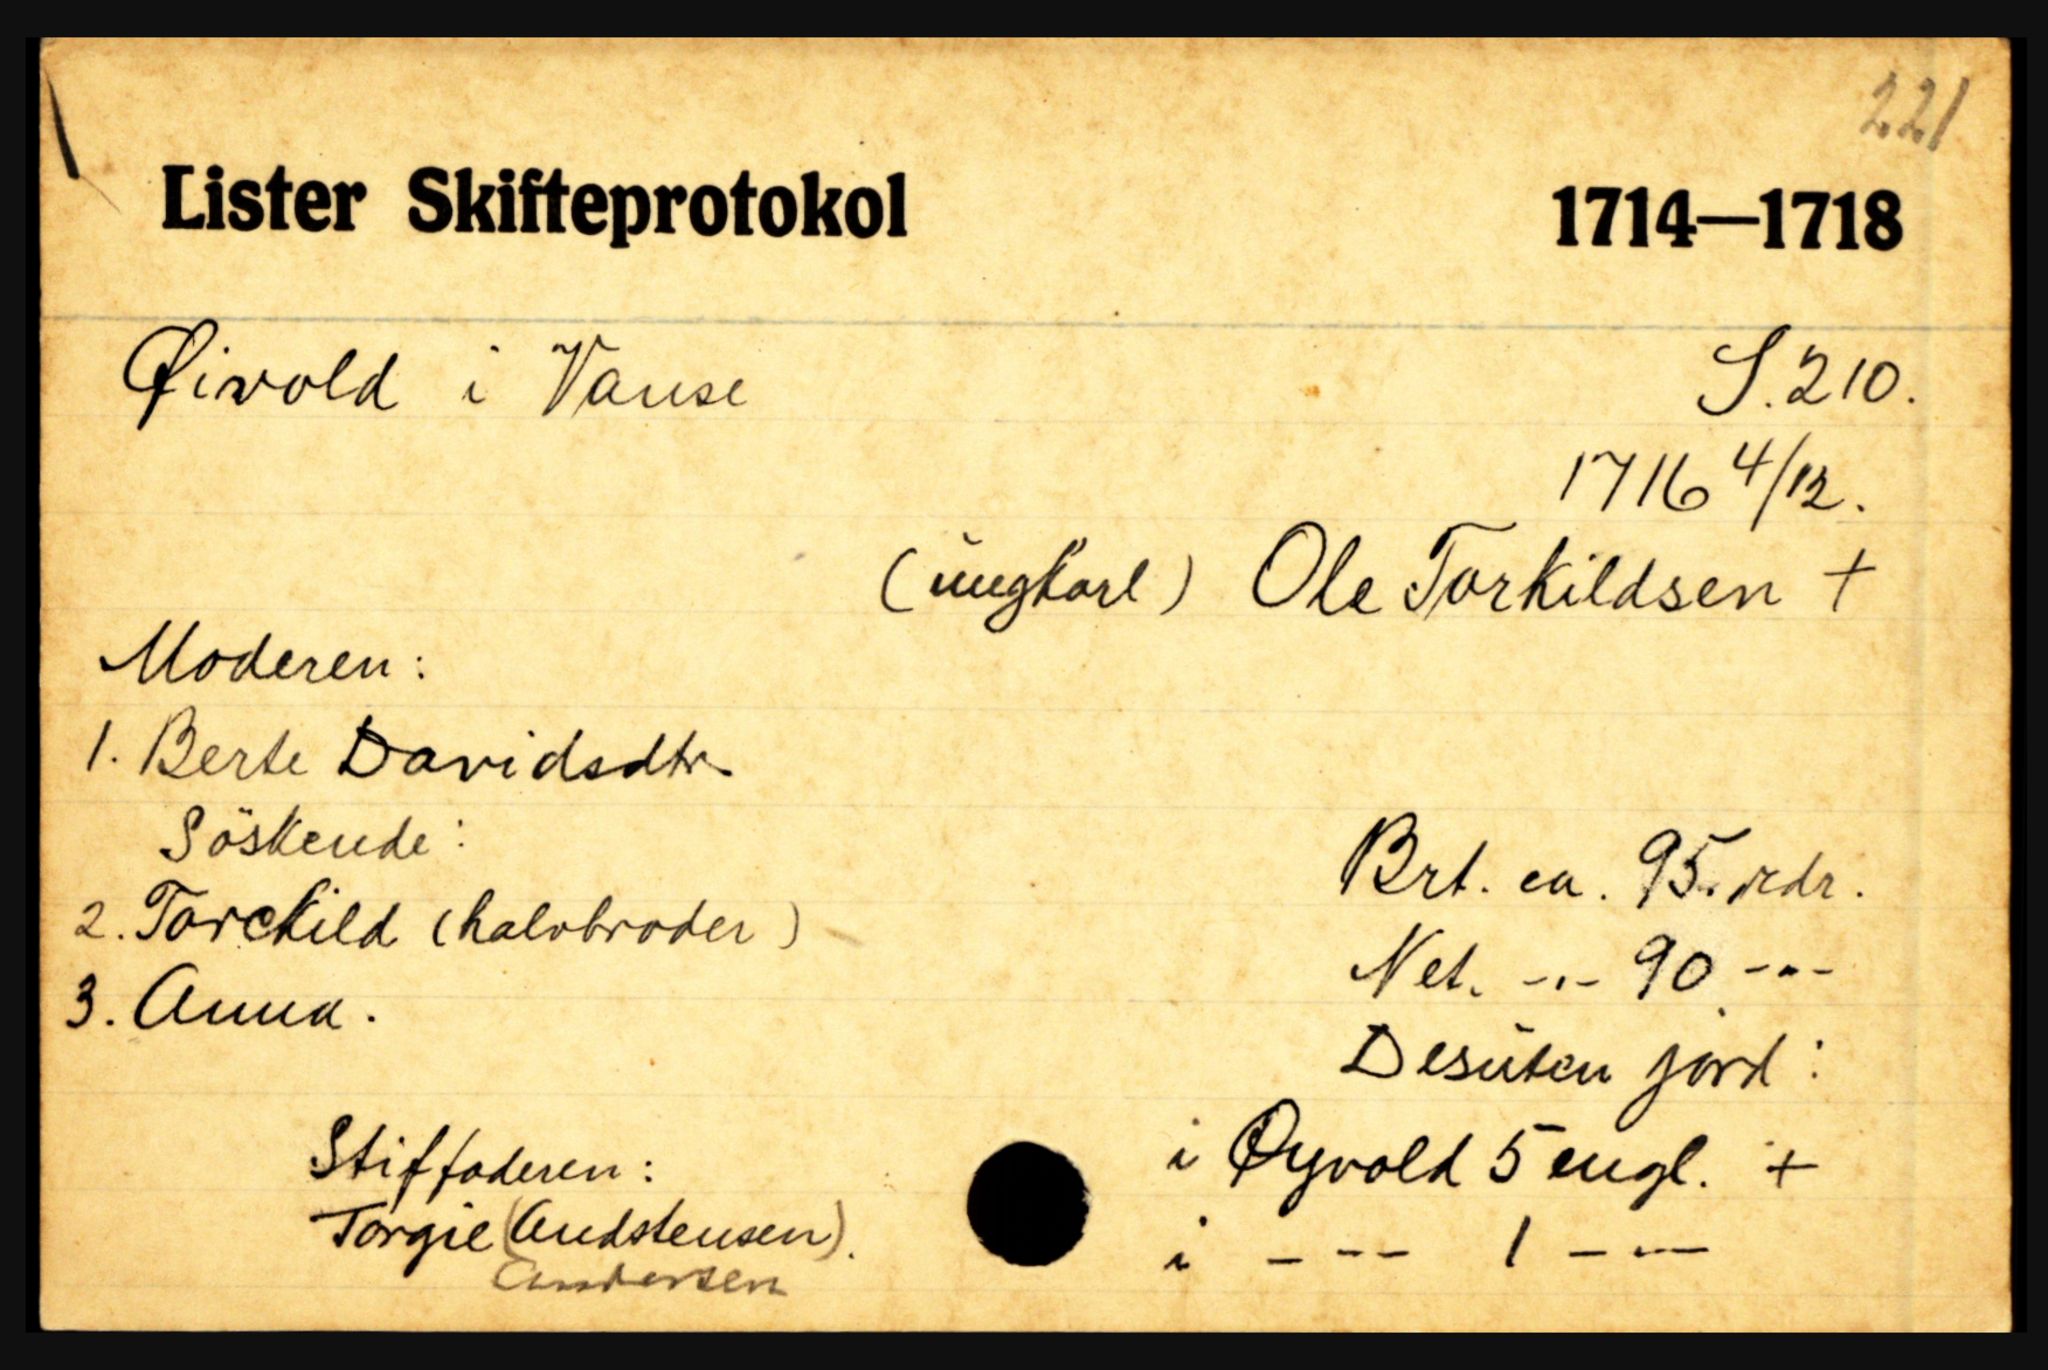 221
Lister Skifteprotokol 1714—1718
Øivold i Vanse S. 210.
1716 4/12.
(ungkarl) Ole Torkildsen +
Moderen:
1. Berte Davidsdtr.
Söskende:
2. Torckild (halvbroder)
3. Anna.
Brt. ca. 95. rdr.
Net. -"- 90 -"-
Desuten jord:
i Øyvold 5 engl. +
i - -- 1 - --
Stiffaderen:
Torgie (Andstensen).
Andersen